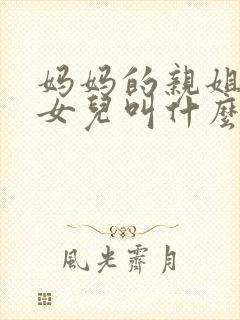 妈妈的親姐
女兒叫什麼
風光霽月